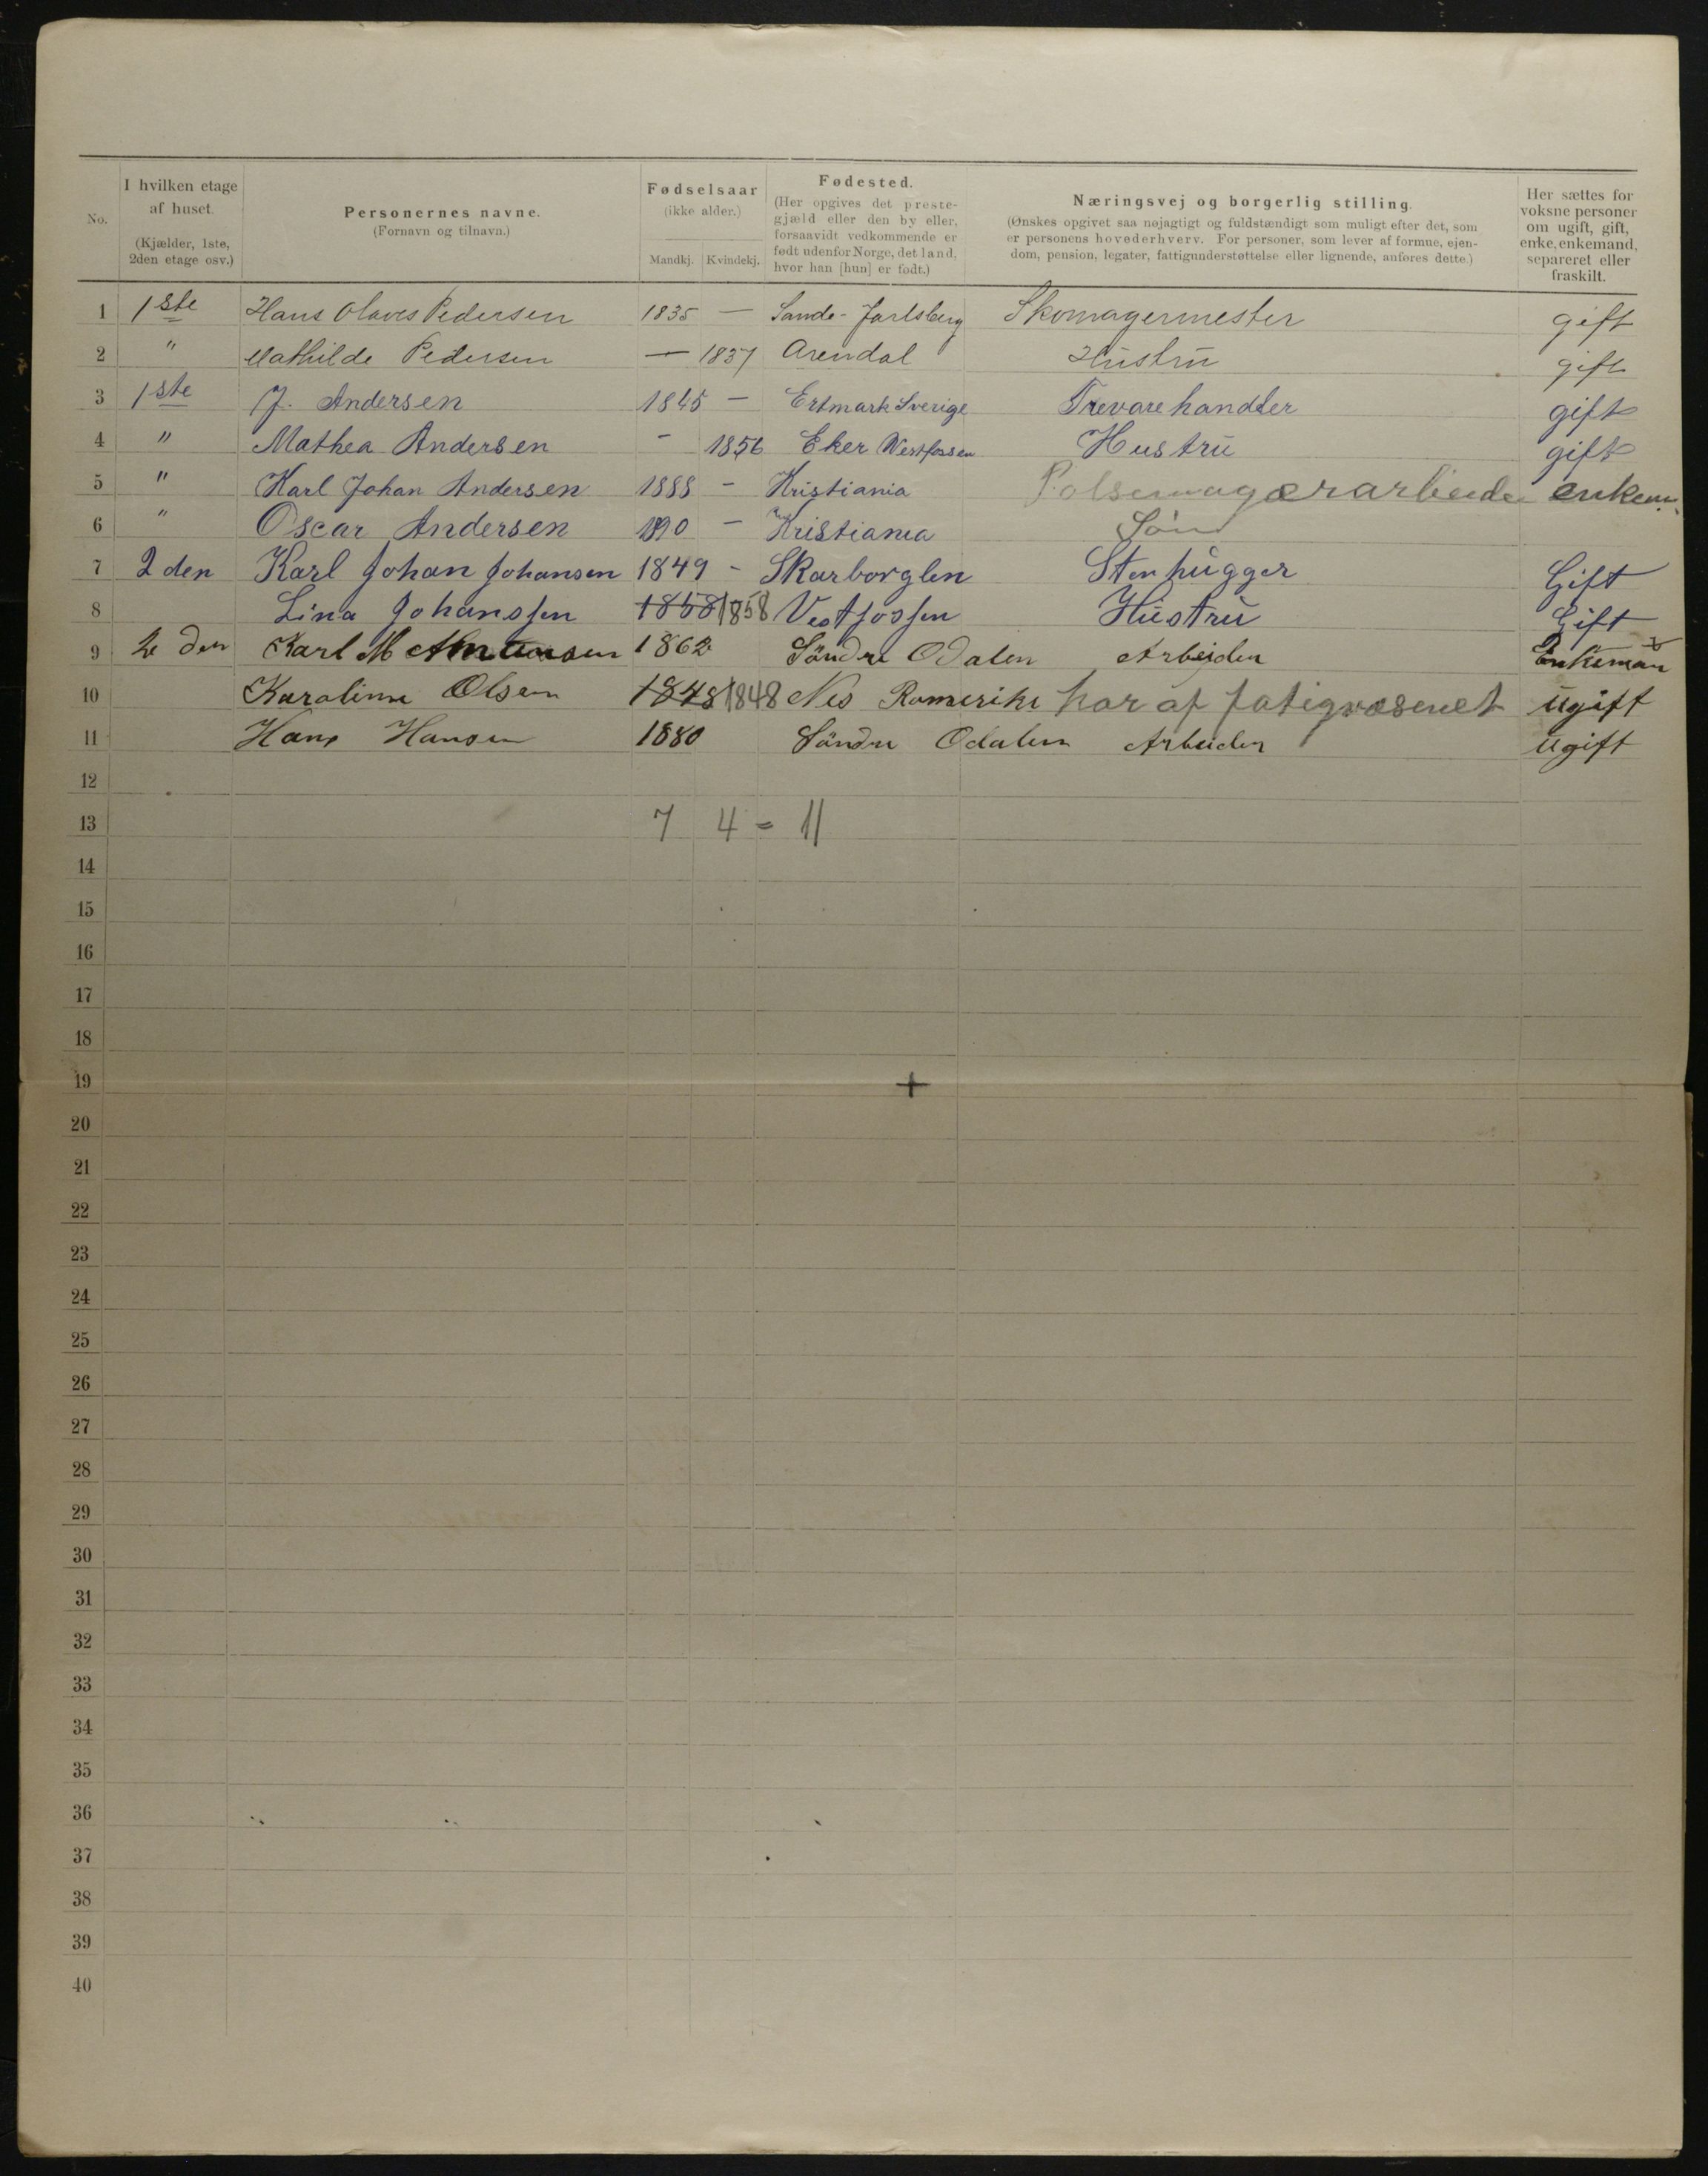 No.
I hvilken etage af huset. (Kjælder, 1ste, 2den etage osv.)
Personernes navne. (Fornavn og tilnavn.)
Fødselsaar (ikke alder.)
Mandkj. Kvindekj.
Fødested. (Her opgives det prestegjæld eller den by eller, forsaavidt vedkommende er født udenfor Norge, det land, hvor han [hun] er født.)
Næringsvej og borgerlig stilling.
(Ønskes opgivet saa nøjagtigt og fuldstændigt som muligt efter det, som
er personens hovederhverv. For personer, som lever af formue, ejen-
dom, pension, legater, fattigunderstøttelse eller lignende, anføres dette.)
Her sættes for voksne personer om ugift, gift, enke, enkemand, separeret eller fraskilt.
1 1ste Hans Olaves Pedersen 1835 — Sande-Jarlsberg Skomagermester gift
2 " Mathilde Pedersen — 1837 Arendal Hustru gift
3 1ste J. Andersen 1845 — Ertmark Sverige Trevarehandler gift
4 " Mathea Andersen - 1856 Eker Westfossen Hustru gift
5 " Karl Johan Andersen 1888 - Kristiania enkem.
6 " Oscar Andersen 1890 - Kristiania Søn
7 2den Karl Johan Johansen 1849 - Skarborglen Stenhugger Gift
8 Lina Johanssen 1858 1858 Vestfossen Hustru Gift
9 2den Karl M 1862 Söndre Odalen Arbeider Enkeman
10 Karoline Olsen 1848 1848 Nes Romerike har af fatigvæsenet ugift
11 Hans Hansen 1880 Söndre Odalen Arbeider ugift
12
13 7 4 = 11
14
15
16
17
18
19 +
20
21
22
23
24
25
26
27
28
29
30
31
32
33
34
35
36
37
38
39
40